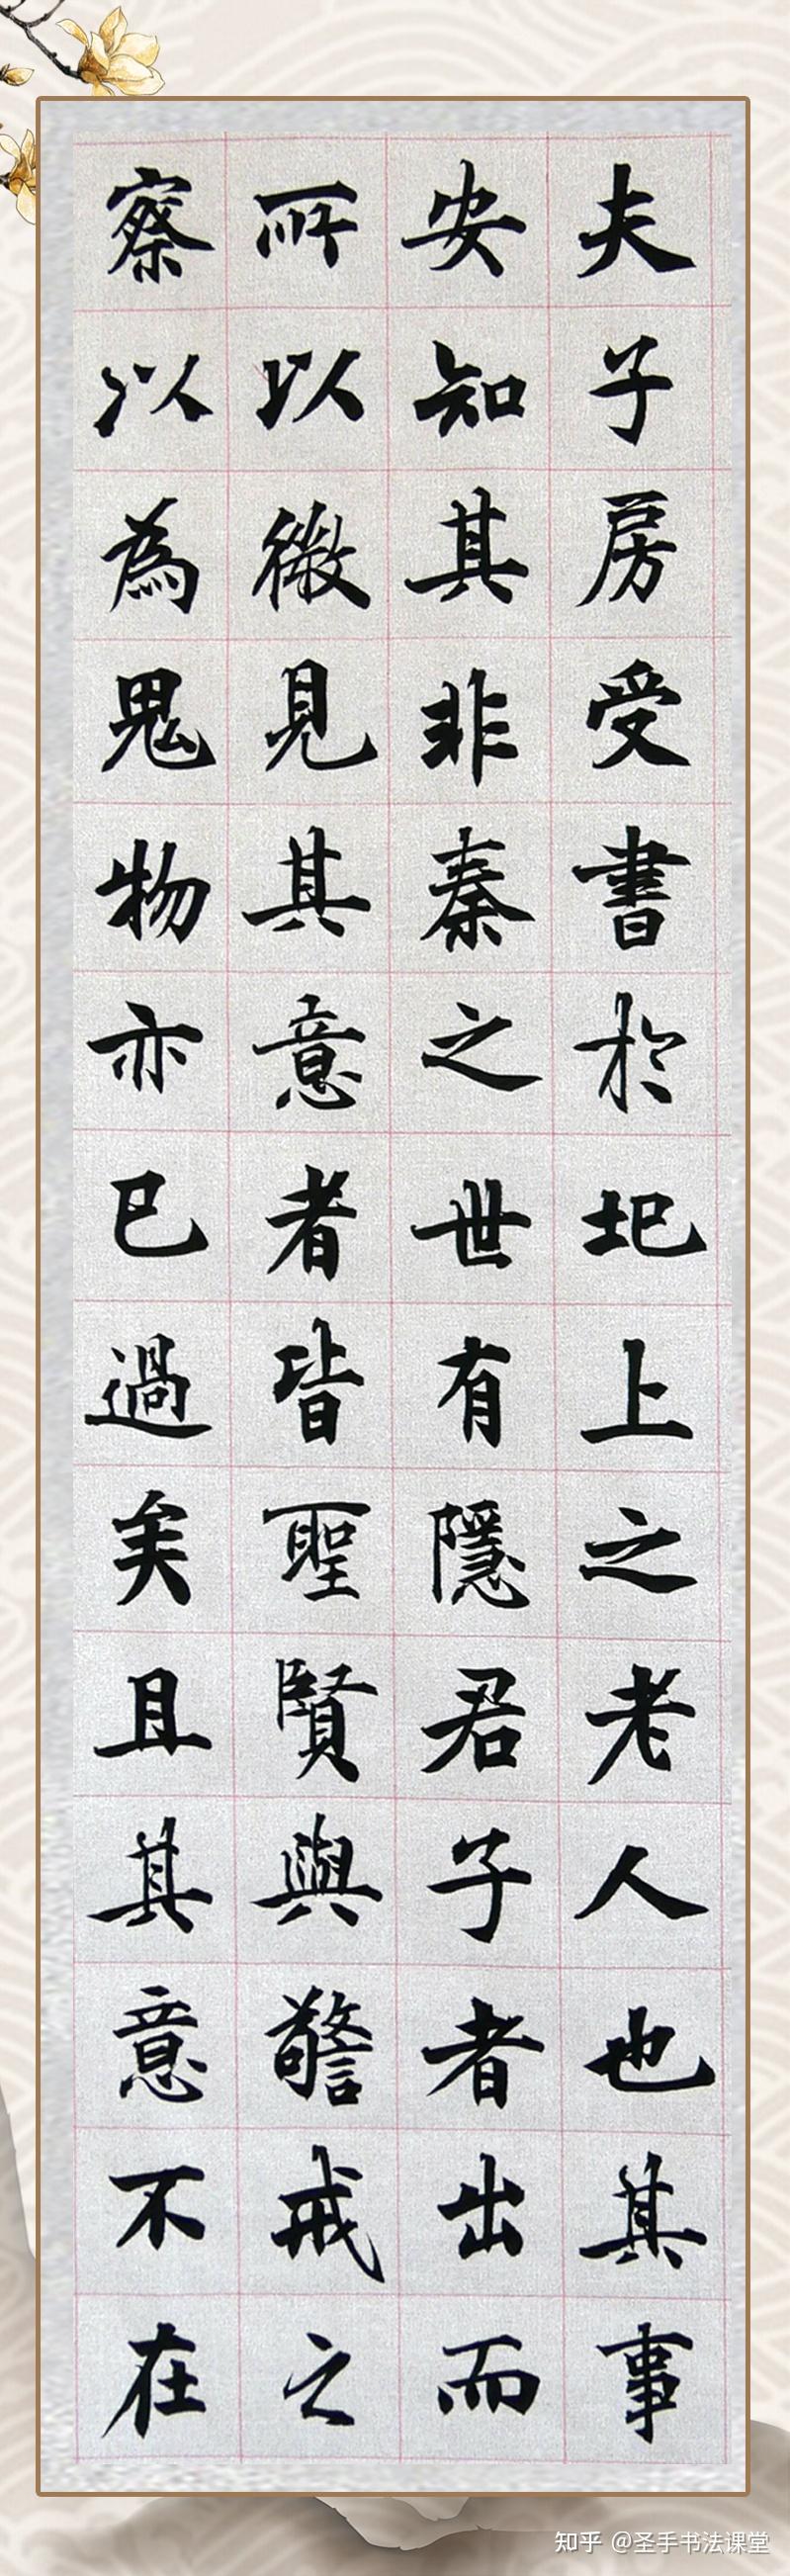 夫子房受書於圯上之老人也其事
安知其非秦之世有隱君子者出而
所以微見其意者皆聖賢與警戒之
察以為鬼物亦已過矣且其意不在
知乎 @圣手书法课堂